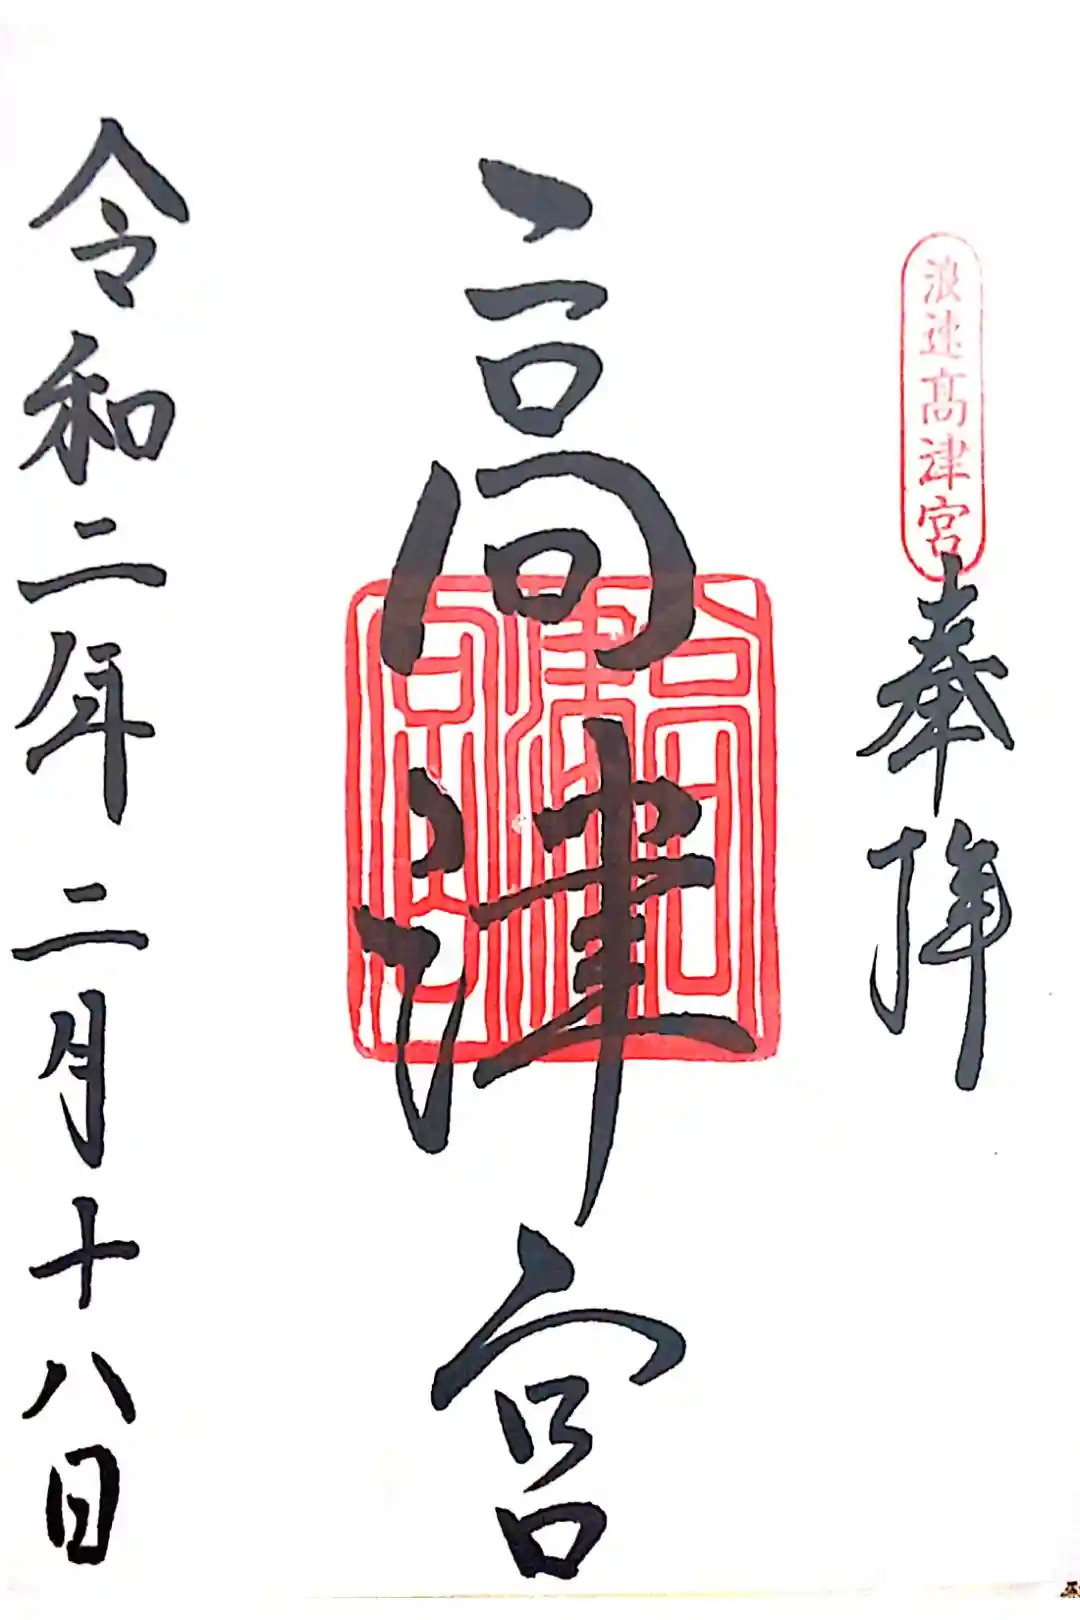 浪速高津宮
奉拝
高津宮
高津宮
令和二年二月十八日